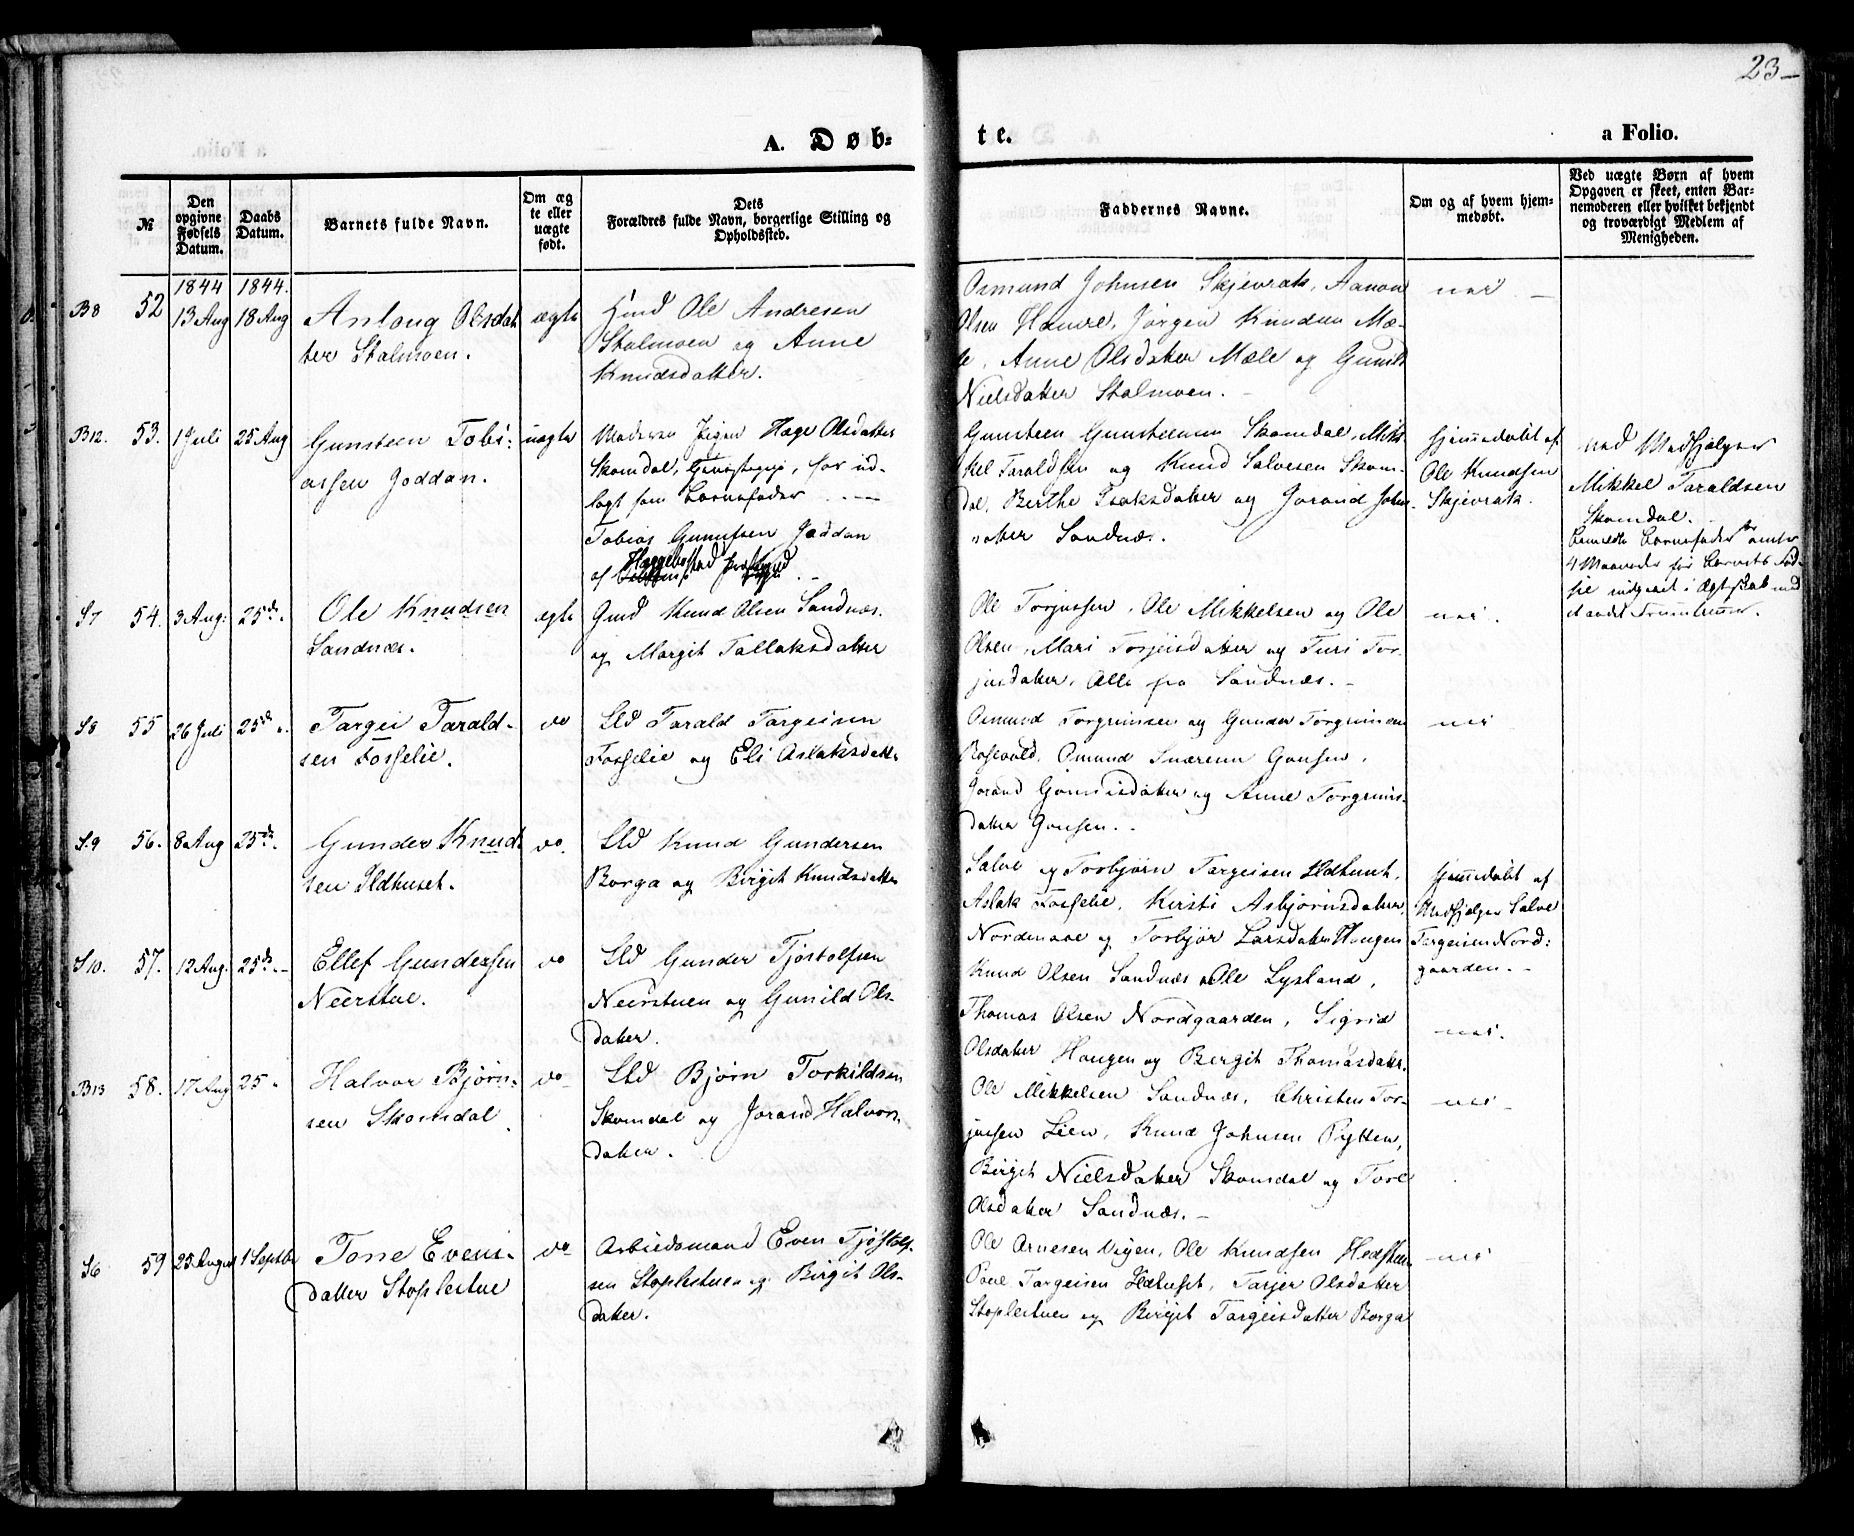 23
A. Døb=
te.
a Folio.
№
Den opgivne Fødsels Datum.
Daabs Datum.
Barnets fulde Navn.
Om ægte eller uægte født.
Dets Forældres fulde Navn, borgerlige Stilling og Opholdssted.
Faddernes Navne.
Om og af hvem hjemmedøbt.
Ved uægte Børn af hvem Opgaven er skeet, enten Barnemoderen eller hvilket bekjendt og troværdigt Medlem af Menigheden.
1844 1844.
B8 52 13 Aug 18 Aug
Anlaug Olsdat
ter Stalmoen.
ægte
Ole Andresen
Stalmoen og Anne
Knudsdatter.
Osmund Johnsen Skjevrak, Aanon
Olsen Hamre, Jørgen Knudsen Mæ-
le, Anne Olsdatter Mæle og Gunild
Nielsdatter Stalmoen.
nei
B12. 53. 1 Juli 25 Aug
Gunsteen Tobi:
assen Joddan.
uægte
Moderen Pigen Hæge Olsdatter
Skomdal, for ud-
lagt som Barnefader
Tobias Gunufsen Joddan
af Hæggebostad Præstegjeld
Gunsteen Gunsteensen Skomdal, Mik
kel Taraldsen og Knud Salvesen Skom-
dal, Berthe Isaksdatter og Jorand Johns
datter Sandnæs.
Hjemmedøbt af
Ole Knudsen
Skjevrak.
ved Medhjelper
Mikkel Taraldsen
Skomdal.
bemeldte Barnefader for omtr
4 Maaneder før Barnets Fød-
sel indgaaet i Ægteskab med
et andet Fruentimmer.
S7 54. 3 Aug: 25de.
Ole Knudsen
Sandnæs.
ægte
Gmd Knud Olsen Sandnæs
og Margit Tallaksdatter
Ole Torjussen, Ole Mikkelsen og Ole
Olsen, Mari Torjeisdatter og Turi Tor-
jusdatter, Alle fra Sandnæs.
nei.
S8 55 26 Juli 25de
Targei Tarald-
sen Fosselie.
do
Lld Tarald Targeisen
Fosselie og Eli Aslaksdatter
Osmund Torgrimsen og Gunder Torgrimsen
Osmund
Jorand og Anne Torgrims-
datter Gonsen.
nei
S.9 56. 8 Aug 25de.
Gunder Knud
sen Ildhuset.
do.
Lld Knud Gundersen
Borga og Birgit Knudsdatter
Salve og Torbjørn Targeisen Ildhuset,
Aslak Fosselie, Kirsti Asbjørnsdatter
Nordenaae og Torbjør Larsdatter Haugen
Hjemmedøbt af
Medhjelper Salve
Targeisen Nord:
gaarden.
S10. 57. 12 Aug. 25de.
Ellef Gundersen
Neerstue.
do
Lld Gunder Tjøstolfsen
Neerstuen og Gunild Ols-
datter.
Knud Olsen Sandnæs Ole Lysland,
Thomas Olsen Nordgaarden, Sigrid
Olsdatter Haugen og Bergit Thomasdatter.
nei.
B13 58. 17 Aug 25
Halvor Bjørn-
sen Skomdal
do
Lld Bjørn Torkildsen
Skomdal og Jorand Halvors
datter.
Ole Mikkelsen Sandnæs, Christen Tor-
jussen Lien, Knud Johnsen Rytten,
Birgit Nielsdatter Skomsdal og Tore
Olsdatter Sandnæs.
nei
S6 59 25 August 1 Septbr
Tone Evens-
datter Stoplestue
do
Arbeidsmand Even Tjøstolf-
sen Stoplestuen og Birgit Ols-
datter.
Ole Arnesen Vigen, Ole Knudsen
Targeisen Ildhuset, Tarjer Olsdatter
Stoplestuen og Birgit Targeisdatter Borga
nei